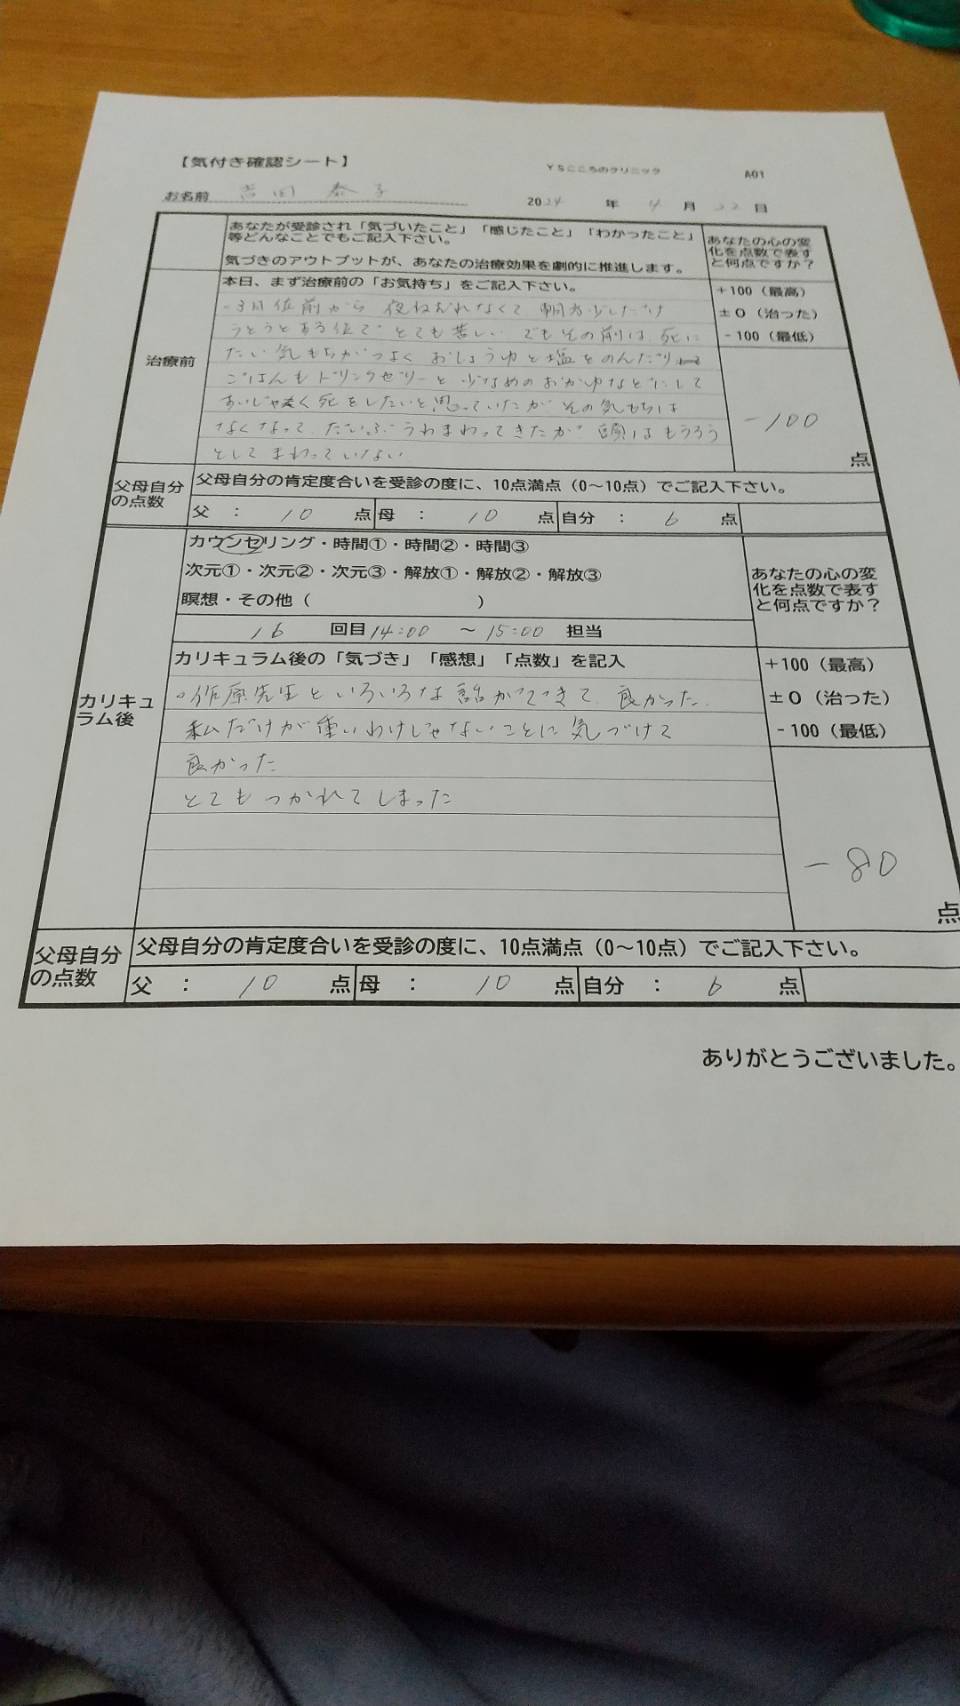 【気付き確認シート】
YSこころのクリニック
A01
お名前 吉田 泰子
2024 年 4 月 22 日
あなたが受診され「気づいたこと」「感じたこと」「わかったこと」
等どんなことでもご記入下さい。
気づきのアウトプットが、あなたの治療効果を劇的に推進します。
あなたの心の変
化を点数で表す
と何点ですか？
治療前
本日、まず治療前の「お気持ち」をご記入下さい。
+100（最高）
±0（治った）
-100（最低）
3月位前から 夜ねむれなくて 朝方少しだけ
うとうとする位で とても苦しい でもその前は 死に
たい気もちがつよく おしょうゆと塩をのんだり
ごはんもドリンクゼリーと 少なめのおかゆなどにして
死をしたいと思っていたが その気もちは
なくなって だいぶうわまわってきたが 頭はもうろう
として まわっていない
-100
点
父母自分
の点数
父母自分の肯定度合いを受診の度に、10点満点（0〜10点）でご記入下さい。
父 ： 10 点 母 ： 10 点 自分 ： 6 点
カリキュ
ラム後
カウンセリング・時間①・時間②・時間③
次元①・次元②・次元③・解放①・解放②・解放③
瞑想・その他（ ）
16 回目 14:00 〜 15:00 担当
あなたの心の変
化を点数で表す
と何点ですか？
カリキュラム後の「気づき」「感想」「点数」を記入
+100（最高）
±0（治った）
-100（最低）
。作原先生といろいろな話ができて 良かった.
私だけが重いわけじゃないことに気づけて
良かった
とても つかれてしまった
-80
点
父母自分
の点数
父母自分の肯定度合いを受診の度に、10点満点（0〜10点）でご記入下さい。
父 ： 10 点 母 ： 10 点 自分 ： 6 点
ありがとうございました。